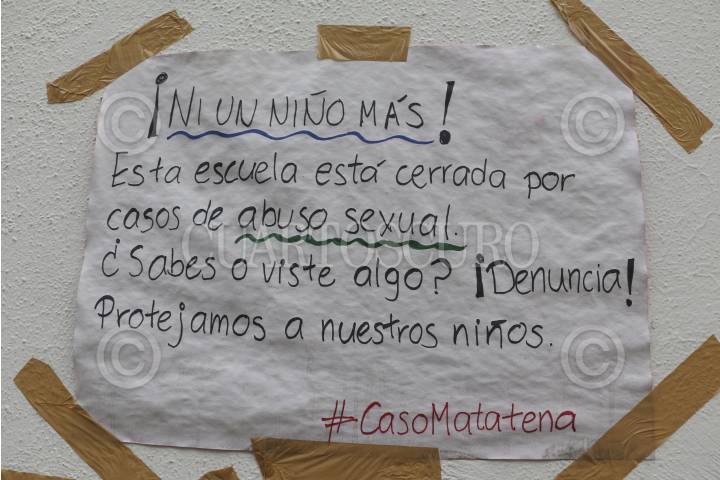 ¡NI UN NIÑO MÁS!
Esta escuela está cerrada por
casos de abuso sexual.
CUARTOSCURO
¿Sabes o viste algo? ¡Denuncia!
Protejamos a nuestros niños.
#CasoMatatena